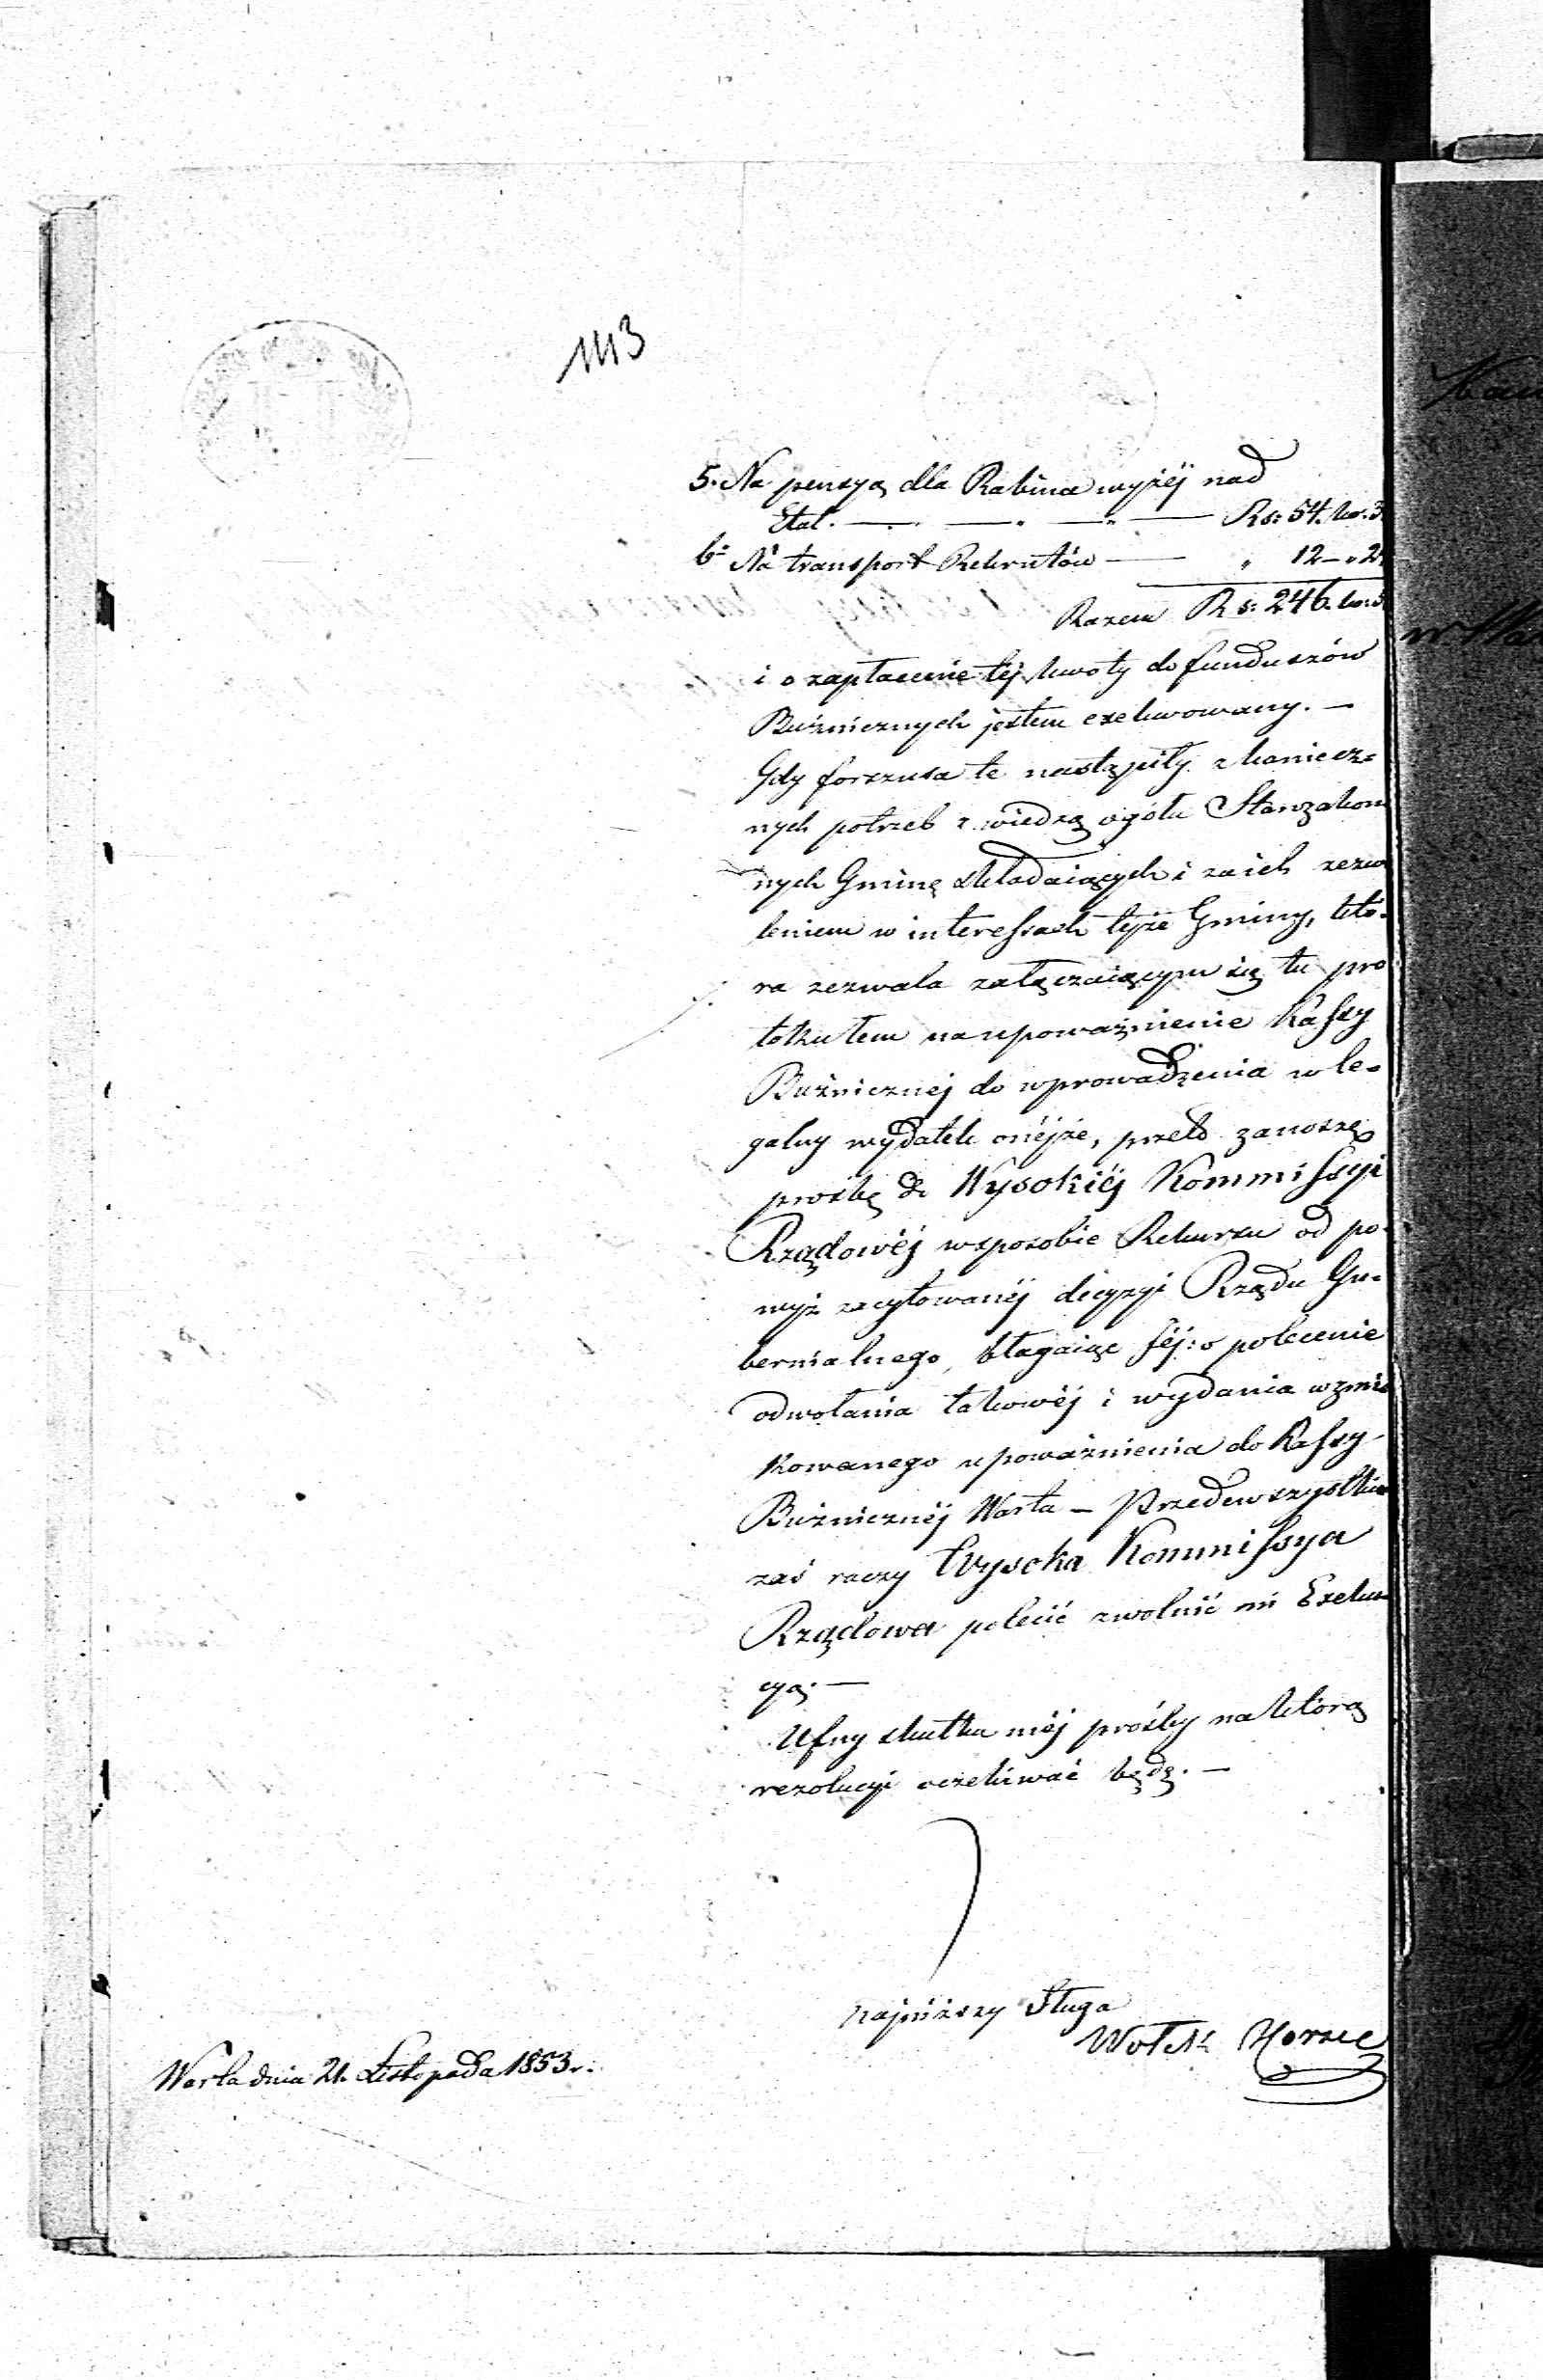 1113
5. Na pensyą dla Rabina wyżéj nad
Etat. — — — — Rs: 54. kop. 3
6: Na transport Rekrutów — „ 12 — „ 2
Razem Rs: 246. kop: 5
i o zapłacenie téj kwoty do funduszów
Bużnicznych jestem exekwowany. —
Gdy forszusa te nastąpiły z koniecz=
nych potrzeb z wiedzą ogółu Starozakon
nych Gminę składaiących i za ich zezwo
leniem w interessach tejże Gminy, któ=
ra zezwala załączaiącym się tu pro
tokułem na upoważnienie Kassy
Bużnicznéj do wprowadzenia w le=
galny wydatek onéjże, przeto zanoszę
prośbę do Wysokiéj Kommissyi
Rządowéj w sposobie Rekursu od po=
wyż zacytowanéj decyzyi Rządu Gu=
bernialnego, błagaiąc Jéj: o polecenie
odwołania takowéj i wydania wzmia
nkowanego upoważnienia do Kassy
Bużnicznéj Warta — Przedewszystkiem
zaś raczy Wysoka Kommissya
Rządowa polecić zwolnić mi Exeku
cyą. —
Ufny skutku méj prośby na którą
rezolucyi oczekiwać będę. —
Najniższy Sługa
Wolek Horzic
Warta dnia 21. Listopada 1853 r.